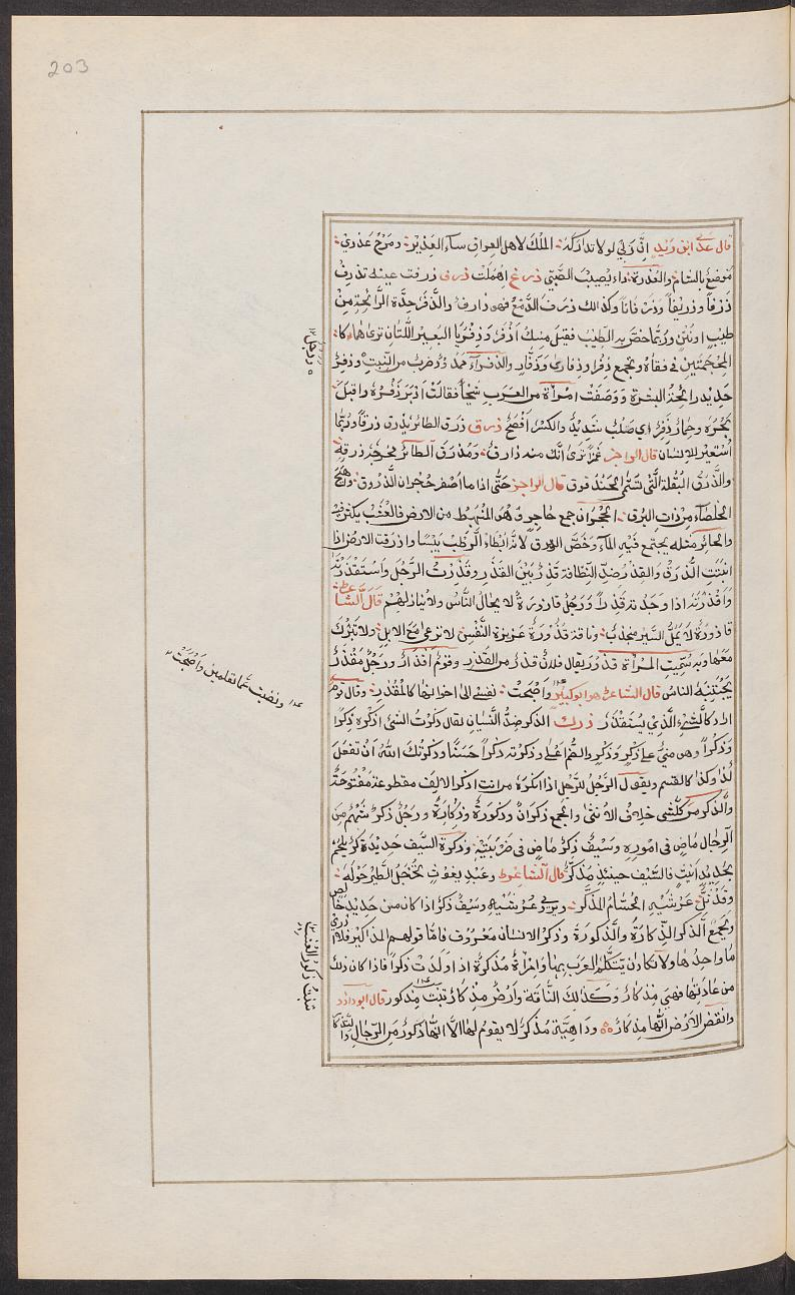 203
قال عدي ابن زيد انّ ربّي لولا تداركه الملك لاهل العراق ساء العذير ومرج عذري
موضع بالشام والعذرة داء يصيب الصّبيّ اهملت ذرف ذرفت عينه تذرف
ذرفاً وذريفاً وذرفاناً وكذالك ذرف الدّمع فهو ذارف والذّفر حدّة الرّائحة من
طيب او نتن وربّما خصّ به الطّيب فقيل مسك اذفر وذفريا البعير اللّتان ترى هما كا
المحجمتين في قفاه ويجمع ذفرا وذفارى والذفراء ضرب من النّبت وذفر
حديد رائحة البشرة ووصفت امرأة من العرب شيخاً فقالت ادبر ذفره واقبل
بخره وحمار ذفر اي صلب شديد والكسر افصح ذرق ذرق الطائر يذرق ذرقا وربّما
استعير للانسان قال الراجز غمزا ترى انّك منه ذارق ومذرق الطائر مخرج ذرقه
والذرق البقلة الّتي تسمّى الحندقوق قال الراجز حتّى اذا ما اصفر حجران الذّروق
الخلصاء من ذات البرق الحجران جمع حاجر وهو المنهبط من الارض فالعشب يكثر فيه
والحائر مثله يجتمع فيه الماء وخصّ الذرق لانّه ابطاء الرّطب يبسا واذرقت الارض اذا
انبتت الذّرق والقذر ضدّ النّظافة قذر بيّن القذر وقذرت الرّجل واستقذرته
واقذرته اذا وجدته قذراً ورجل قاذورة لا يخالّ النّاس ولا ينازلهم قال الشاعر
قاذورة لا يملّ السّير منجذب وناقة قذور عزيزة النّفس لا ترعى مع الابل ولا تبرك
معها وبه سمّيت المرأة قذور يقال فلان قذر من القذر وقوم اقذار ورجل مقذر
يجتنبه الناس قال الشاعر هو ابو كبير واضحت نفسي الى اخوانها كالمقذر وقال قوم
اراد كالشيء الّذي يستقذر ذرك الذكر ضدّ النّسيان يقال ذكرت الشئ اذكره ذكرا
وذكراً وهي منّي على ذكر وذكر والضّم اعلى وذكرته ذكراً حسنا وذكرتك الله ان تفعل
كذا وكذا كالقسم ويقول الرّجل للرّجل اذا انكره من انت اذكر الالف مقطوعة مفتوحة
والذّكر من كلّ شي خلاف الانثى والجمع ذكران وذكورة وذكارة ورجل ذكر شهم من
الرّجال ماض في اموره وسيف ذكر ماض في ضريبته وذكرة السّيف حديدة ذكر يلحم
بحديد انيث فالسّيف حينئذ مذكّر قال الشاعر وعبد يغوث تحجل الطّير حوله
وقد ثلّ عرشيه الحسام المذكّر ويروى عرشيه وسيف ذكر اذا كان من حديد خالص
ويجمع الذكر الذّكارة والذّكورة وذكر الانسان معروف فامّا قولهم المذاكير فلا
ما واحدها ولا تكاد تتكلّم العرب بها وامرأة مذكرة اذا ولدت ذكراً فاذا كان ذلك
من عادتها فهي مذكار وكذالك النّاقة وارض مذكار تنبت ذكور قال ابو داود
وداهية مذكر لا يقوم لها الّا ذكور من الرّجال
ونضيت ممّا تعلمين واضحت
تنبت ذكور العشب